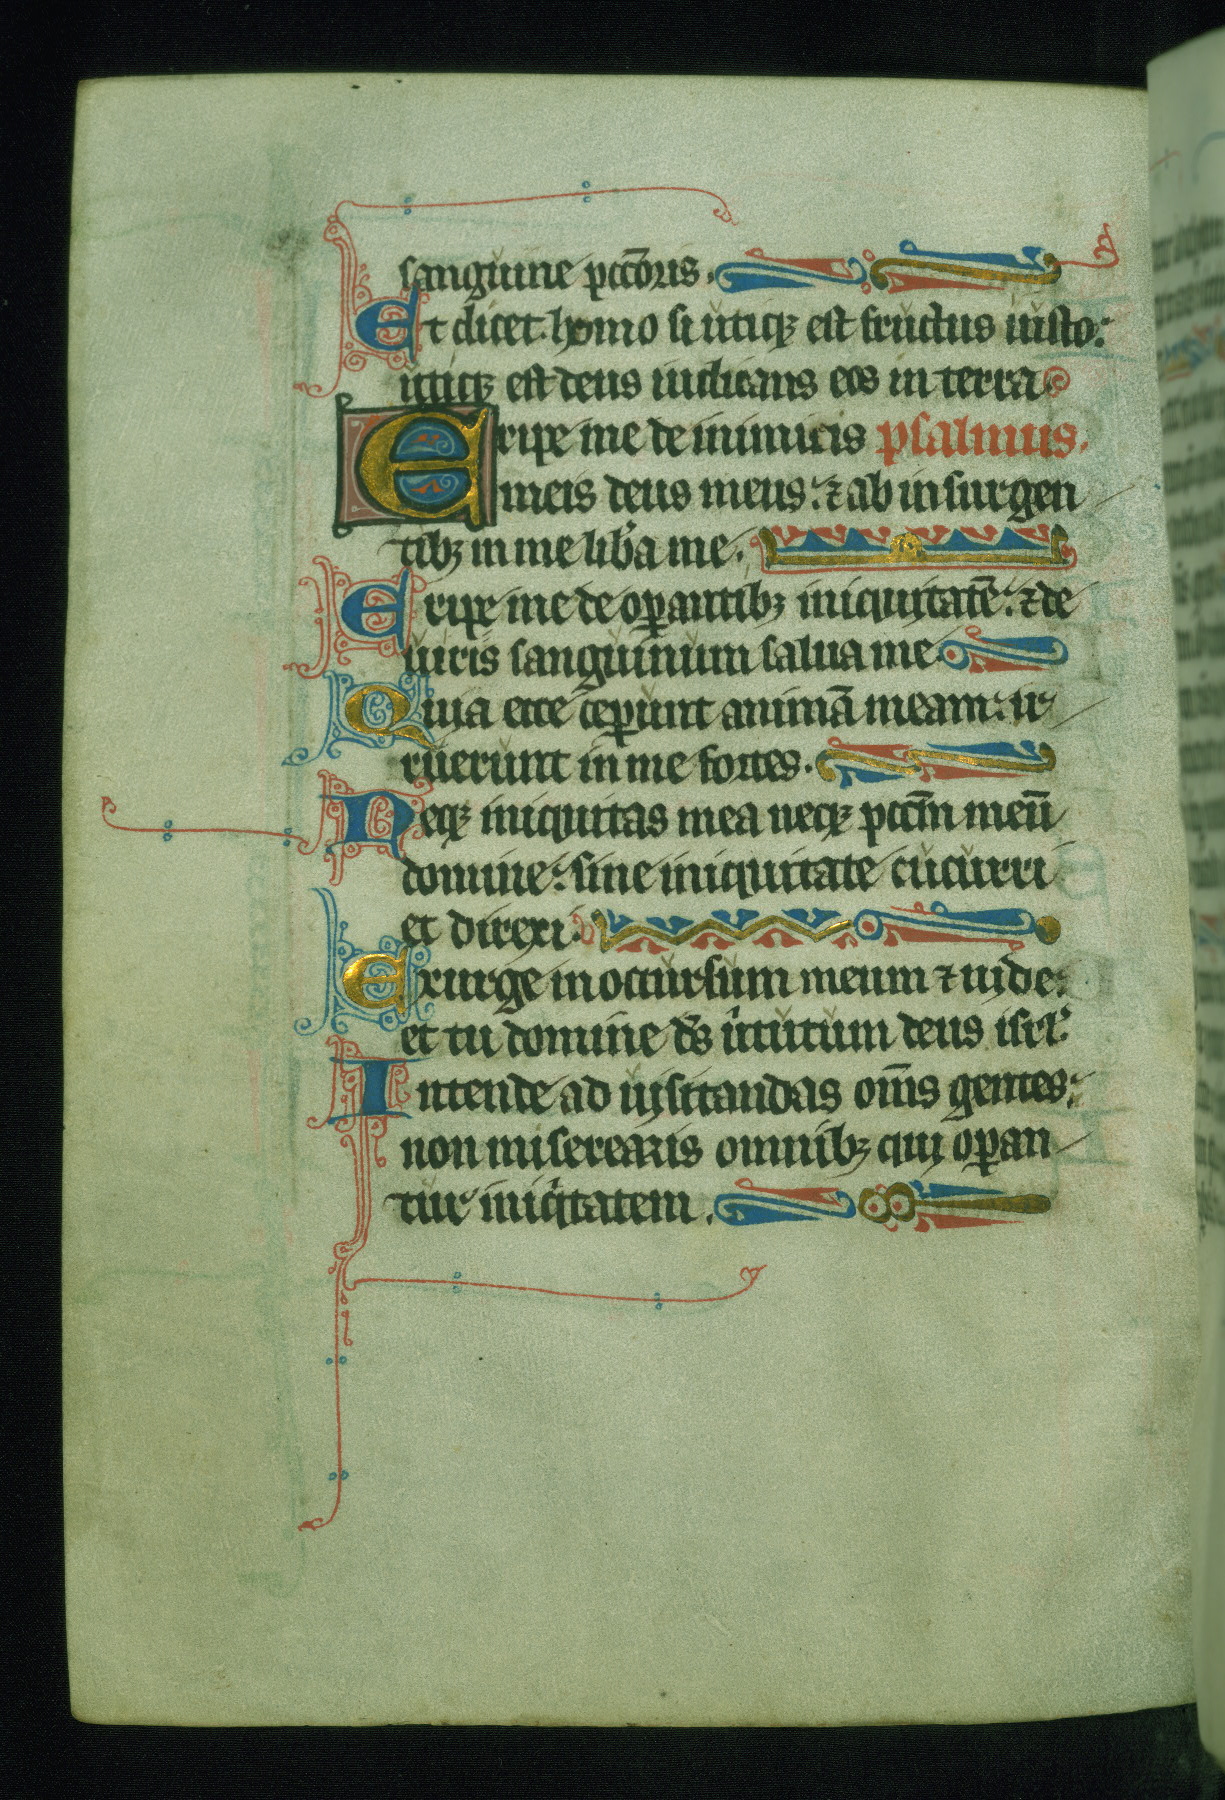 sanguine pccōris.
Et dicet homo si utiqꝫ est fructus iusto:
utiqꝫ est deus iudicans eos in terra
Eripe me de inimicis psalmus.
meis deus meus: ⁊ ab insurgen
tibꝫ in me lib̾a me.
Eripe me de oꝑantibꝫ iniquitatē: ⁊ de
uiris sanguinum salua me.
Quia ecce ceꝑunt animā meam: ir
ruerunt in me fortes.
Neqꝫ iniquitas mea neqꝫ pccm̄ meū
domine: sine iniquitate cucurri
et direxi.
Exurge in occursum meum ⁊ uide:
et tu domine ds̄ uirtutum deus isrl̾.
Intende ad uisitandas om̄s gentes:
non miserearis omnibꝫ qui oꝑan
tur iniqͥtatem.